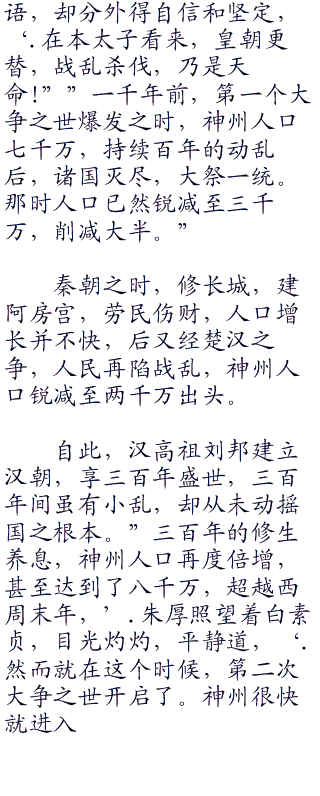 语，却分外得自信和坚定，
‘.在本太子看来，皇朝更
替，战乱杀伐，乃是天
命!”” 一千年前，第一个大
争之世爆发之时，神州人口
七千万，持续百年的动乱
后，诸国灭尽，大祭一统。
那时人口已然锐减至三千
万，削减大半。”
秦朝之时，修长城，建
阿房宫，劳民伤财，人口增
长并不快，后又经楚汉之
争，人民再陷战乱，神州人
口锐减至两千万出头。
自此，汉高祖刘邦建立
汉朝，享三百年盛世，三百
年间虽有小乱，却从未动摇
国之根本。”三百年的修生
养息，神州人口再度倍增，
甚至达到了八千万，超越西
周末年，’.朱厚照望着白素
贞，目光灼灼，平静道，‘.
然而就在这个时候，第二次
大争之世开启了。神州很快
就进入